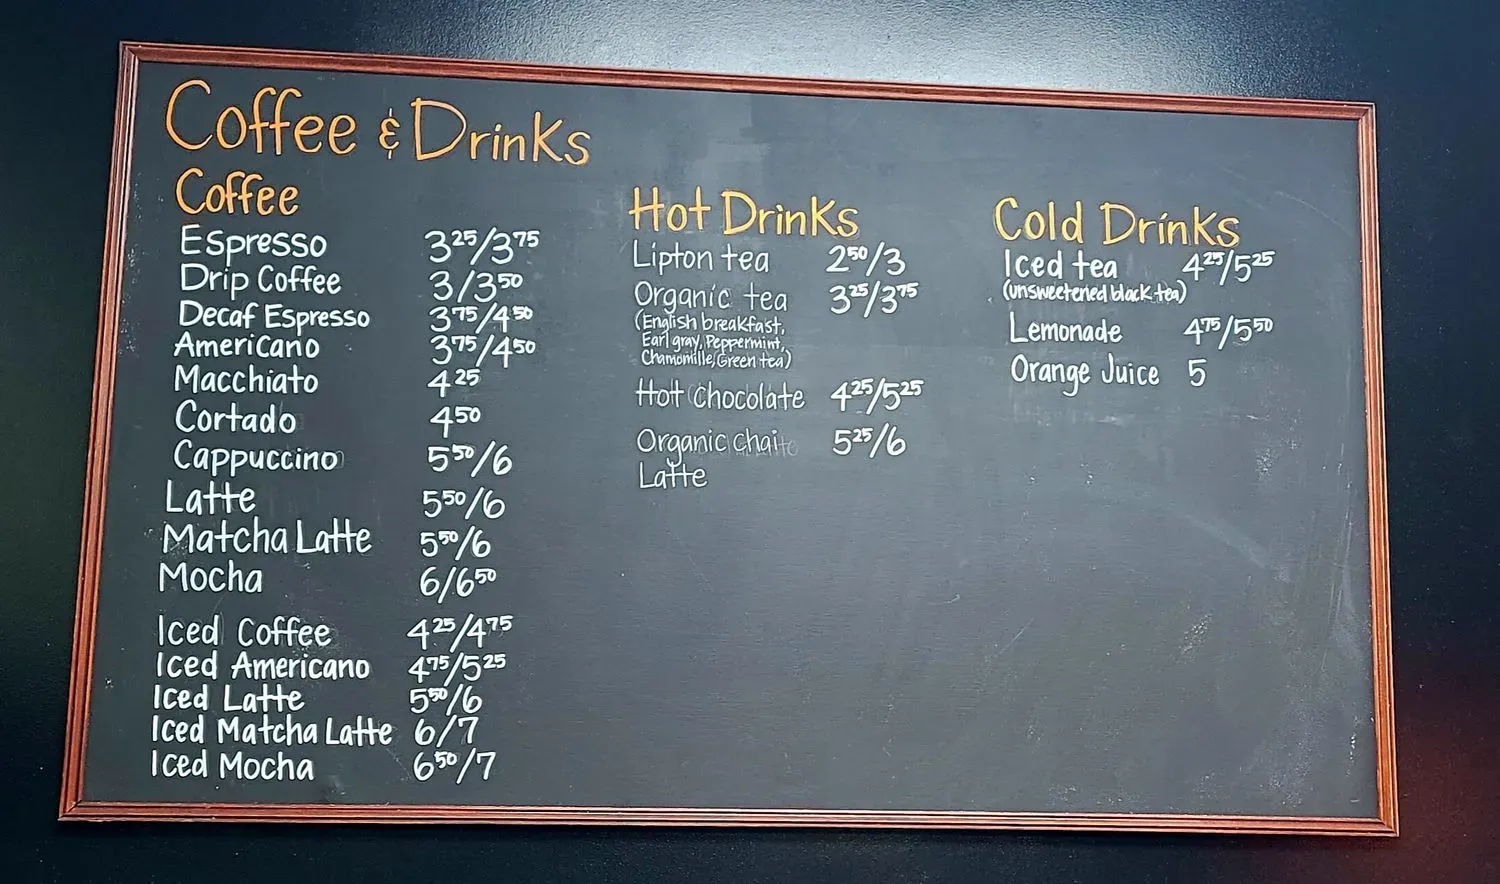 Coffee & Drinks
Coffee
Espresso 3.25/3.75
Drip Coffee 3/3.50
Decaf Espresso 3.75/4.50
Americano 3.75/4.50
Macchiato 4.25
Cortado 4.50
Cappuccino 5.50/6
Latte 5.50/6
Matcha Latte 5.50/6
Mocha 6/6.50
Iced Coffee 4.25/4.75
Iced Americano 4.75/5.25
Iced Latte 5.50/6
Iced Matcha Latte 6/7
Iced Mocha 6.50/7
Hot Drinks
Lipton tea 2.50/3
Organic tea 3.25/3.75
(English breakfast,
Earl gray, Peppermint,
Chamomille, Green tea)
Hot Chocolate 4.25/5.25
Organic chai 5.25/6
Latte
Cold Drinks
Iced tea 4.25/5.25
(unsweetened black tea)
Lemonade 4.75/5.50
Orange Juice 5